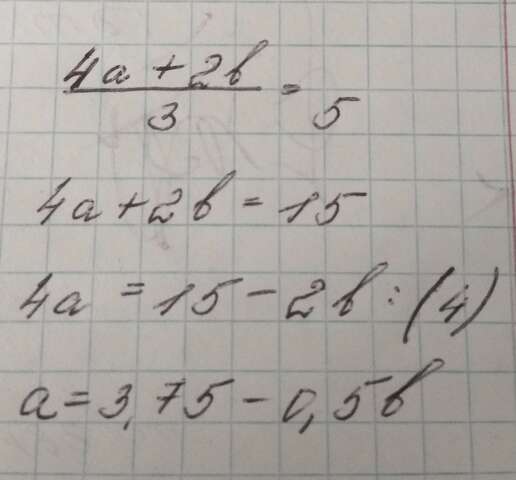 4a + 2b
3
= 5
4a + 2b = 15
4a = 15 - 2b : (4)
a = 3,75 - 0,5b